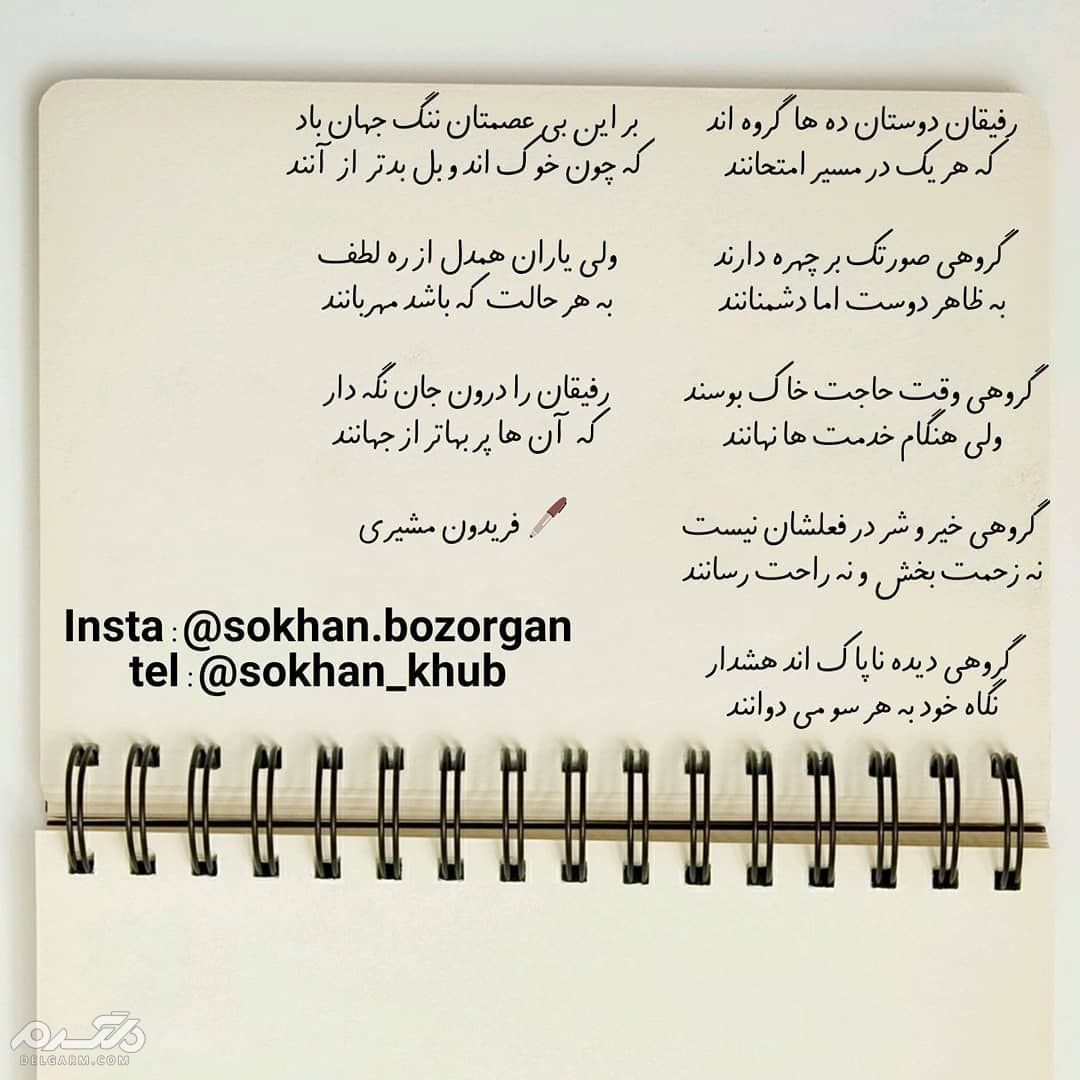 رفیقان دوستان ده ها گروه اند
که هر یک در مسیر امتحانند
گروهی صورتک بر چهره دارند
به ظاهر دوست اما دشمنانند
گروهی وقت حاجت خاک بوسند
ولی هنگام خدمت ها نهانند
گروهی خیر و شر در فعلشان نیست
نه زحمت بخش و نه راحت رسانند
گروهی دیده ناپاک اند هشدار
نگاه خود به هر سو می دوانند
بر این بی عصمتان ننگ جهان باد
که چون خوک اند و بل بدتر از آنند
ولی یاران همدل از ره لطف
به هر حالت که باشد مهربانند
رفیقان را درون جان نگه دار
که آن ها پر بهاتر از جهانند
فریدون مشیری
Insta : @sokhan.bozorgan
tel : @sokhan_khub
دلگرم
DELGARM.COM